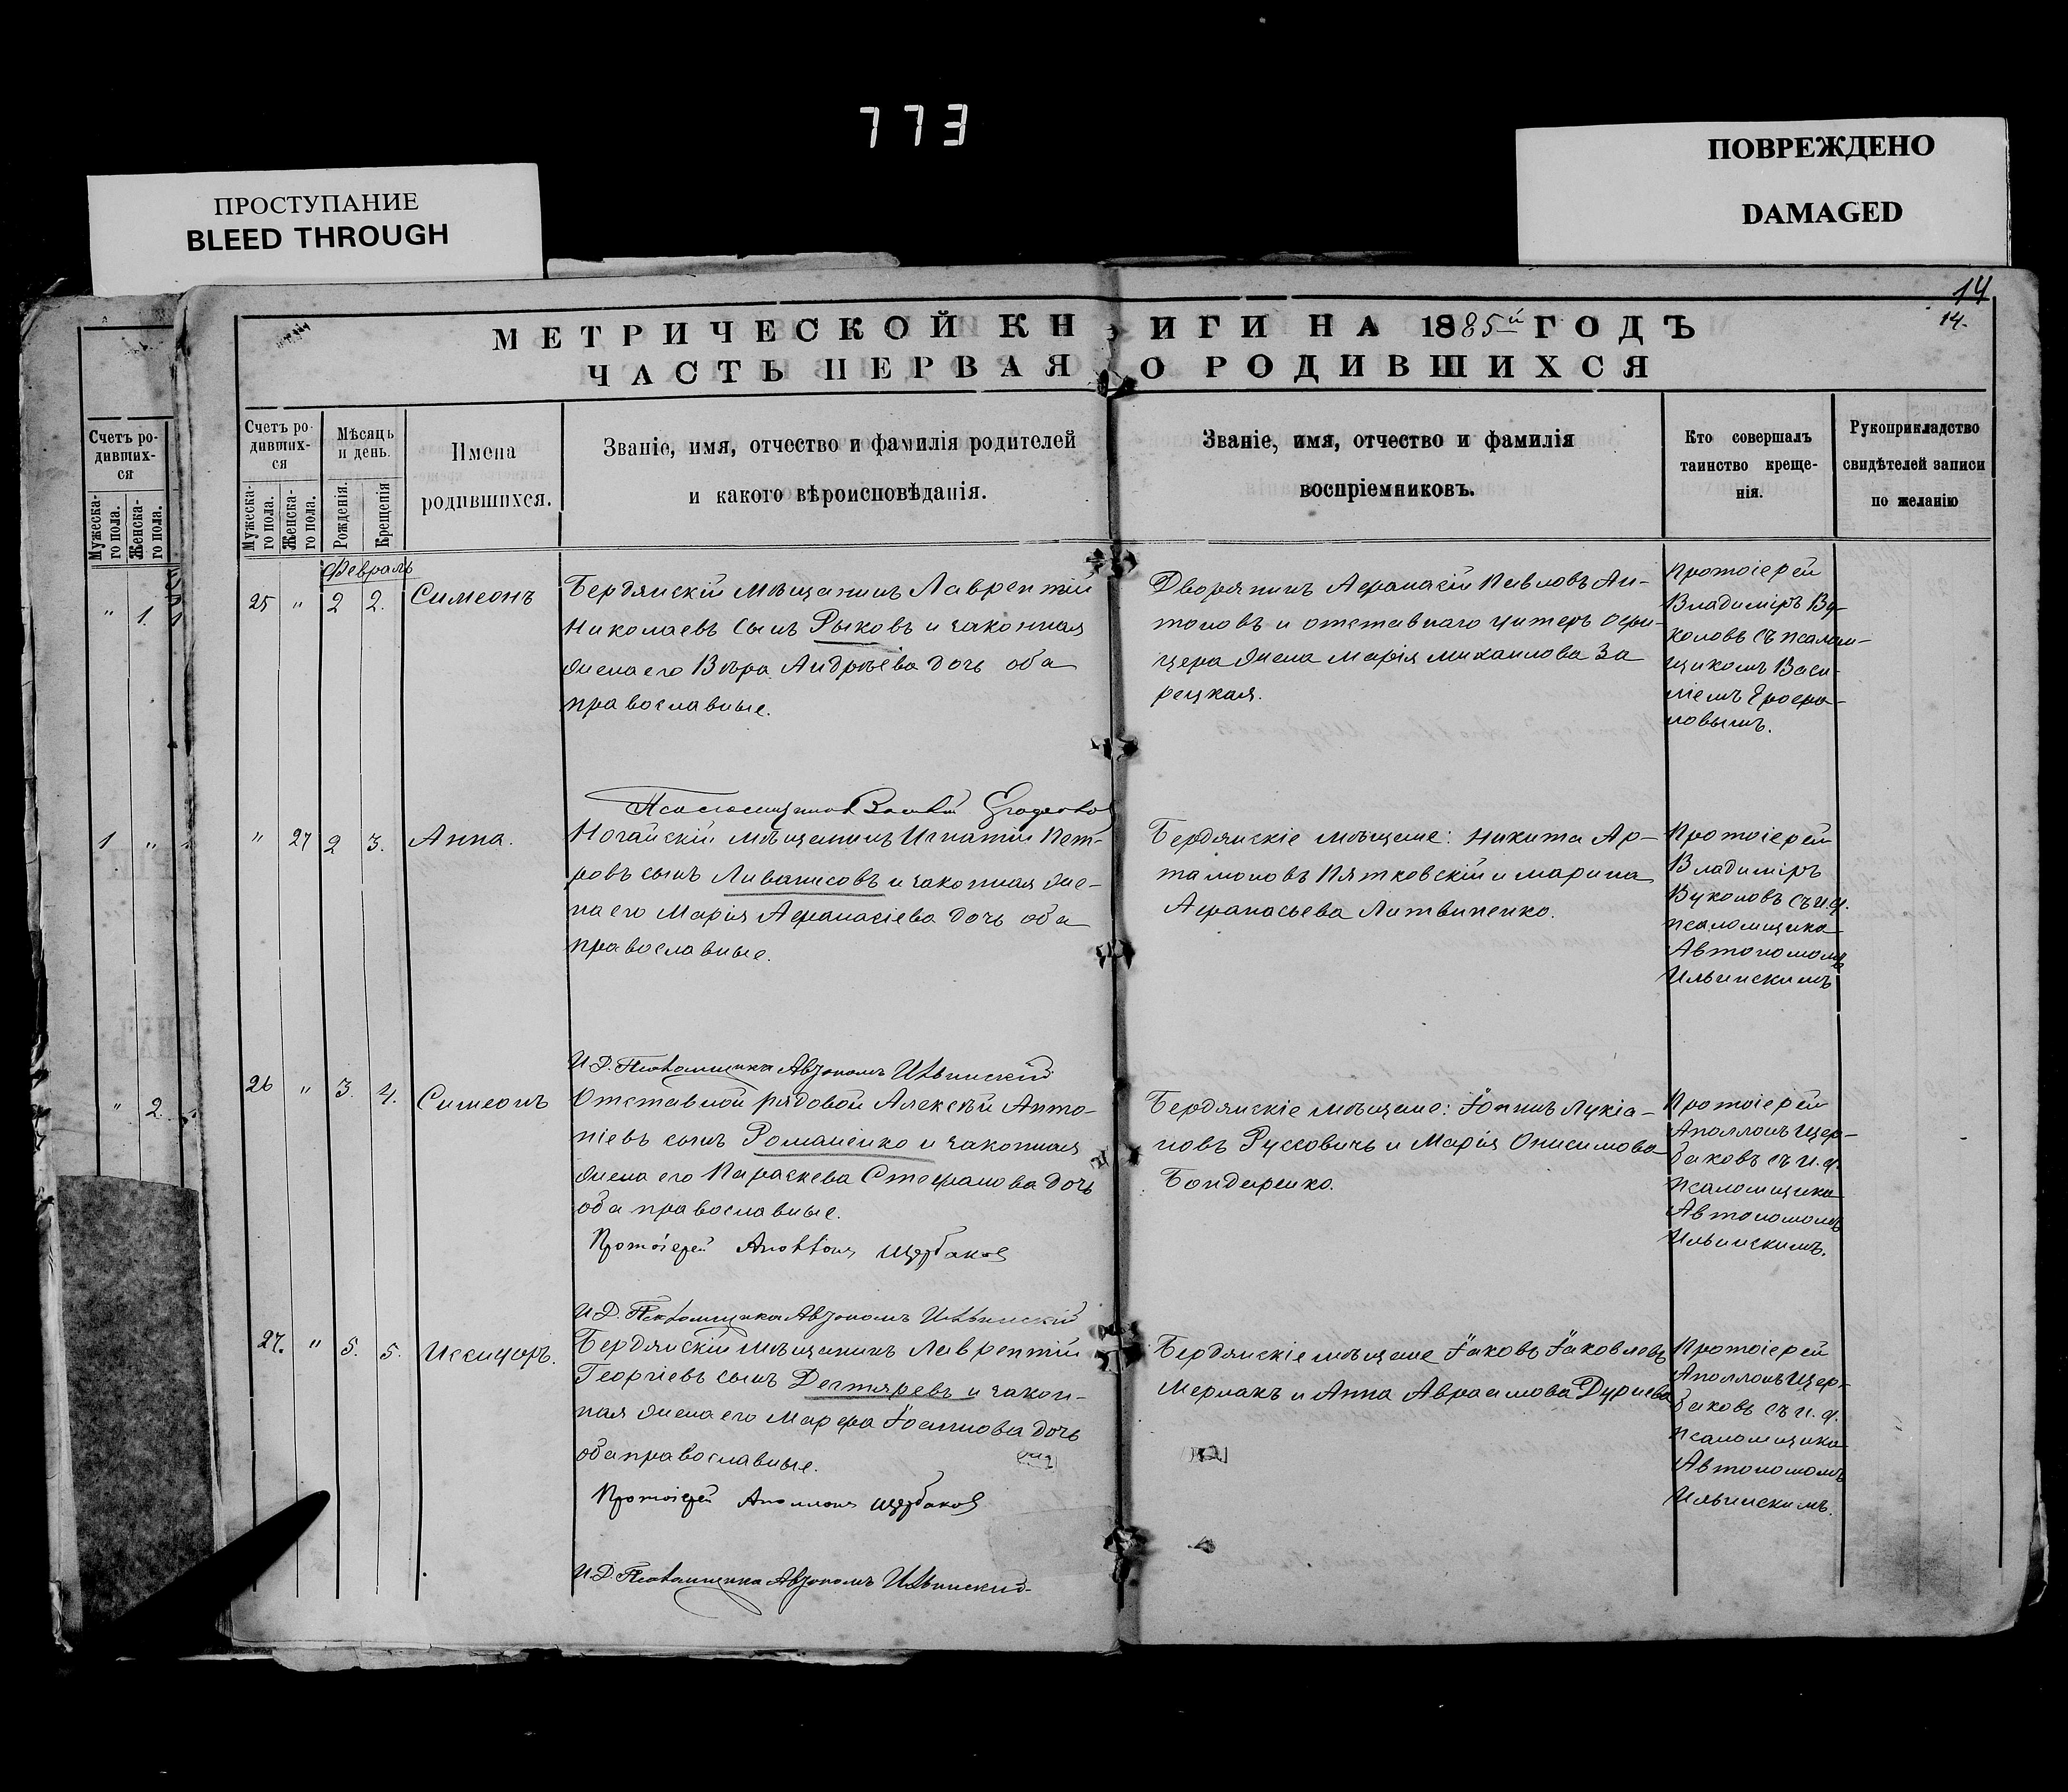 773
ПРОСТУПАНИЕ
BLEED THROUGH
ПОВРЕЖДЕНО
DAMAGED
14
14.
МЕТРИЧЕСКОЙ КНИГИ НА 1885й ГОДЪ
ЧАСТЬ ПЕРВАЯ О РОДИВШИХСЯ
Счетъ ро-
дивших-
ся
Мужеска-
го пола.
Женска-
го пола.
" 1.
1 "
" 2.
Счетъ ро-
дивших-
ся
Мужеска-
го пола.
Женска-
го пола.
Мѣсяцъ
и день.
Рожденія.
Крещенія
Имена
родившихся.
Званіе, имя, отчество и фамилія родителей
и какого вѣроисповѣданія.
Званіе, имя, отчество и фамилія
воспріемниковъ.
Кто совершалъ
таинство креще-
нія.
Рукоприкладство
свидѣтелей записи
по желанію
Февраль
25 " 2 2. Симеонъ
Бердянскій мѣщанинъ Лаврентій
Николаевъ сынъ Рыковъ и законная
жена его Вѣра Андрѣева дочь оба
православные.
Дворянинъ Афанасій Павловъ Ан-
тоновъ и отставнаго унтеръ офи-
цера жена Марія Михаилова За
рецкая.
Протоіерей
Владиміръ Ву-
коловъ съ псалом-
щикомъ Васи-
ліемъ Ерофа-
новымъ.
Псаломщикъ Василій
" 27 2 3. Анна.
Ногайскій мѣщанинъ Игнатій Пет-
ровъ сынъ Ливанисовъ и законная же-
на его Марія Афанасіева дочь оба
православные.
Бердянскіе мѣщане: Никита Ар-
тамоновъ Пятковскій и Марина
Афанасьева Литвиненко.
Протоіерей
Владиміръ
Вуколовъ съ и.д.
псаломщика
Автономомъ
Ильинскимъ
И.Д. Псаломщика Автономъ Ильинскій
26 " 3. 4. Симеонъ
Отставной рядовой Алексѣй Анто-
ніевъ сынъ Романенко и законная
жена его Параскева Стефанова дочь
оба православные.
Протоіерей Аполлонъ Щербаковъ
Бердянскіе мѣщане: Іоаннъ Лукіа-
новъ Руссовичъ и Марія Онисимова
Бондаренко.
Протоіерей
Аполлонъ Щер-
баковъ съ и.д.
псаломщика
Автономомъ
Ильинскимъ.
И.Д. Псаломщика Автономъ Ильинскій
27. " 5. 5. Исидоръ.
Бердянскій мѣщанинъ Лаврентій
Георгіевъ сынъ Дегтяревъ и закон-
ная жена его Марфа Іоаннова дочь
оба православные.
Протоіерей Аполлонъ Щербаковъ
Бердянскіе мѣщане Іаковъ Іаковлевъ
Мермакъ и Анна Авраамова Дуриева
Протоіерей
Аполлонъ Щер-
баковъ съ и.д.
псаломщика
Автономомъ
Ильинскимъ.
И.Д. Псаломщика Автономъ Ильинскій